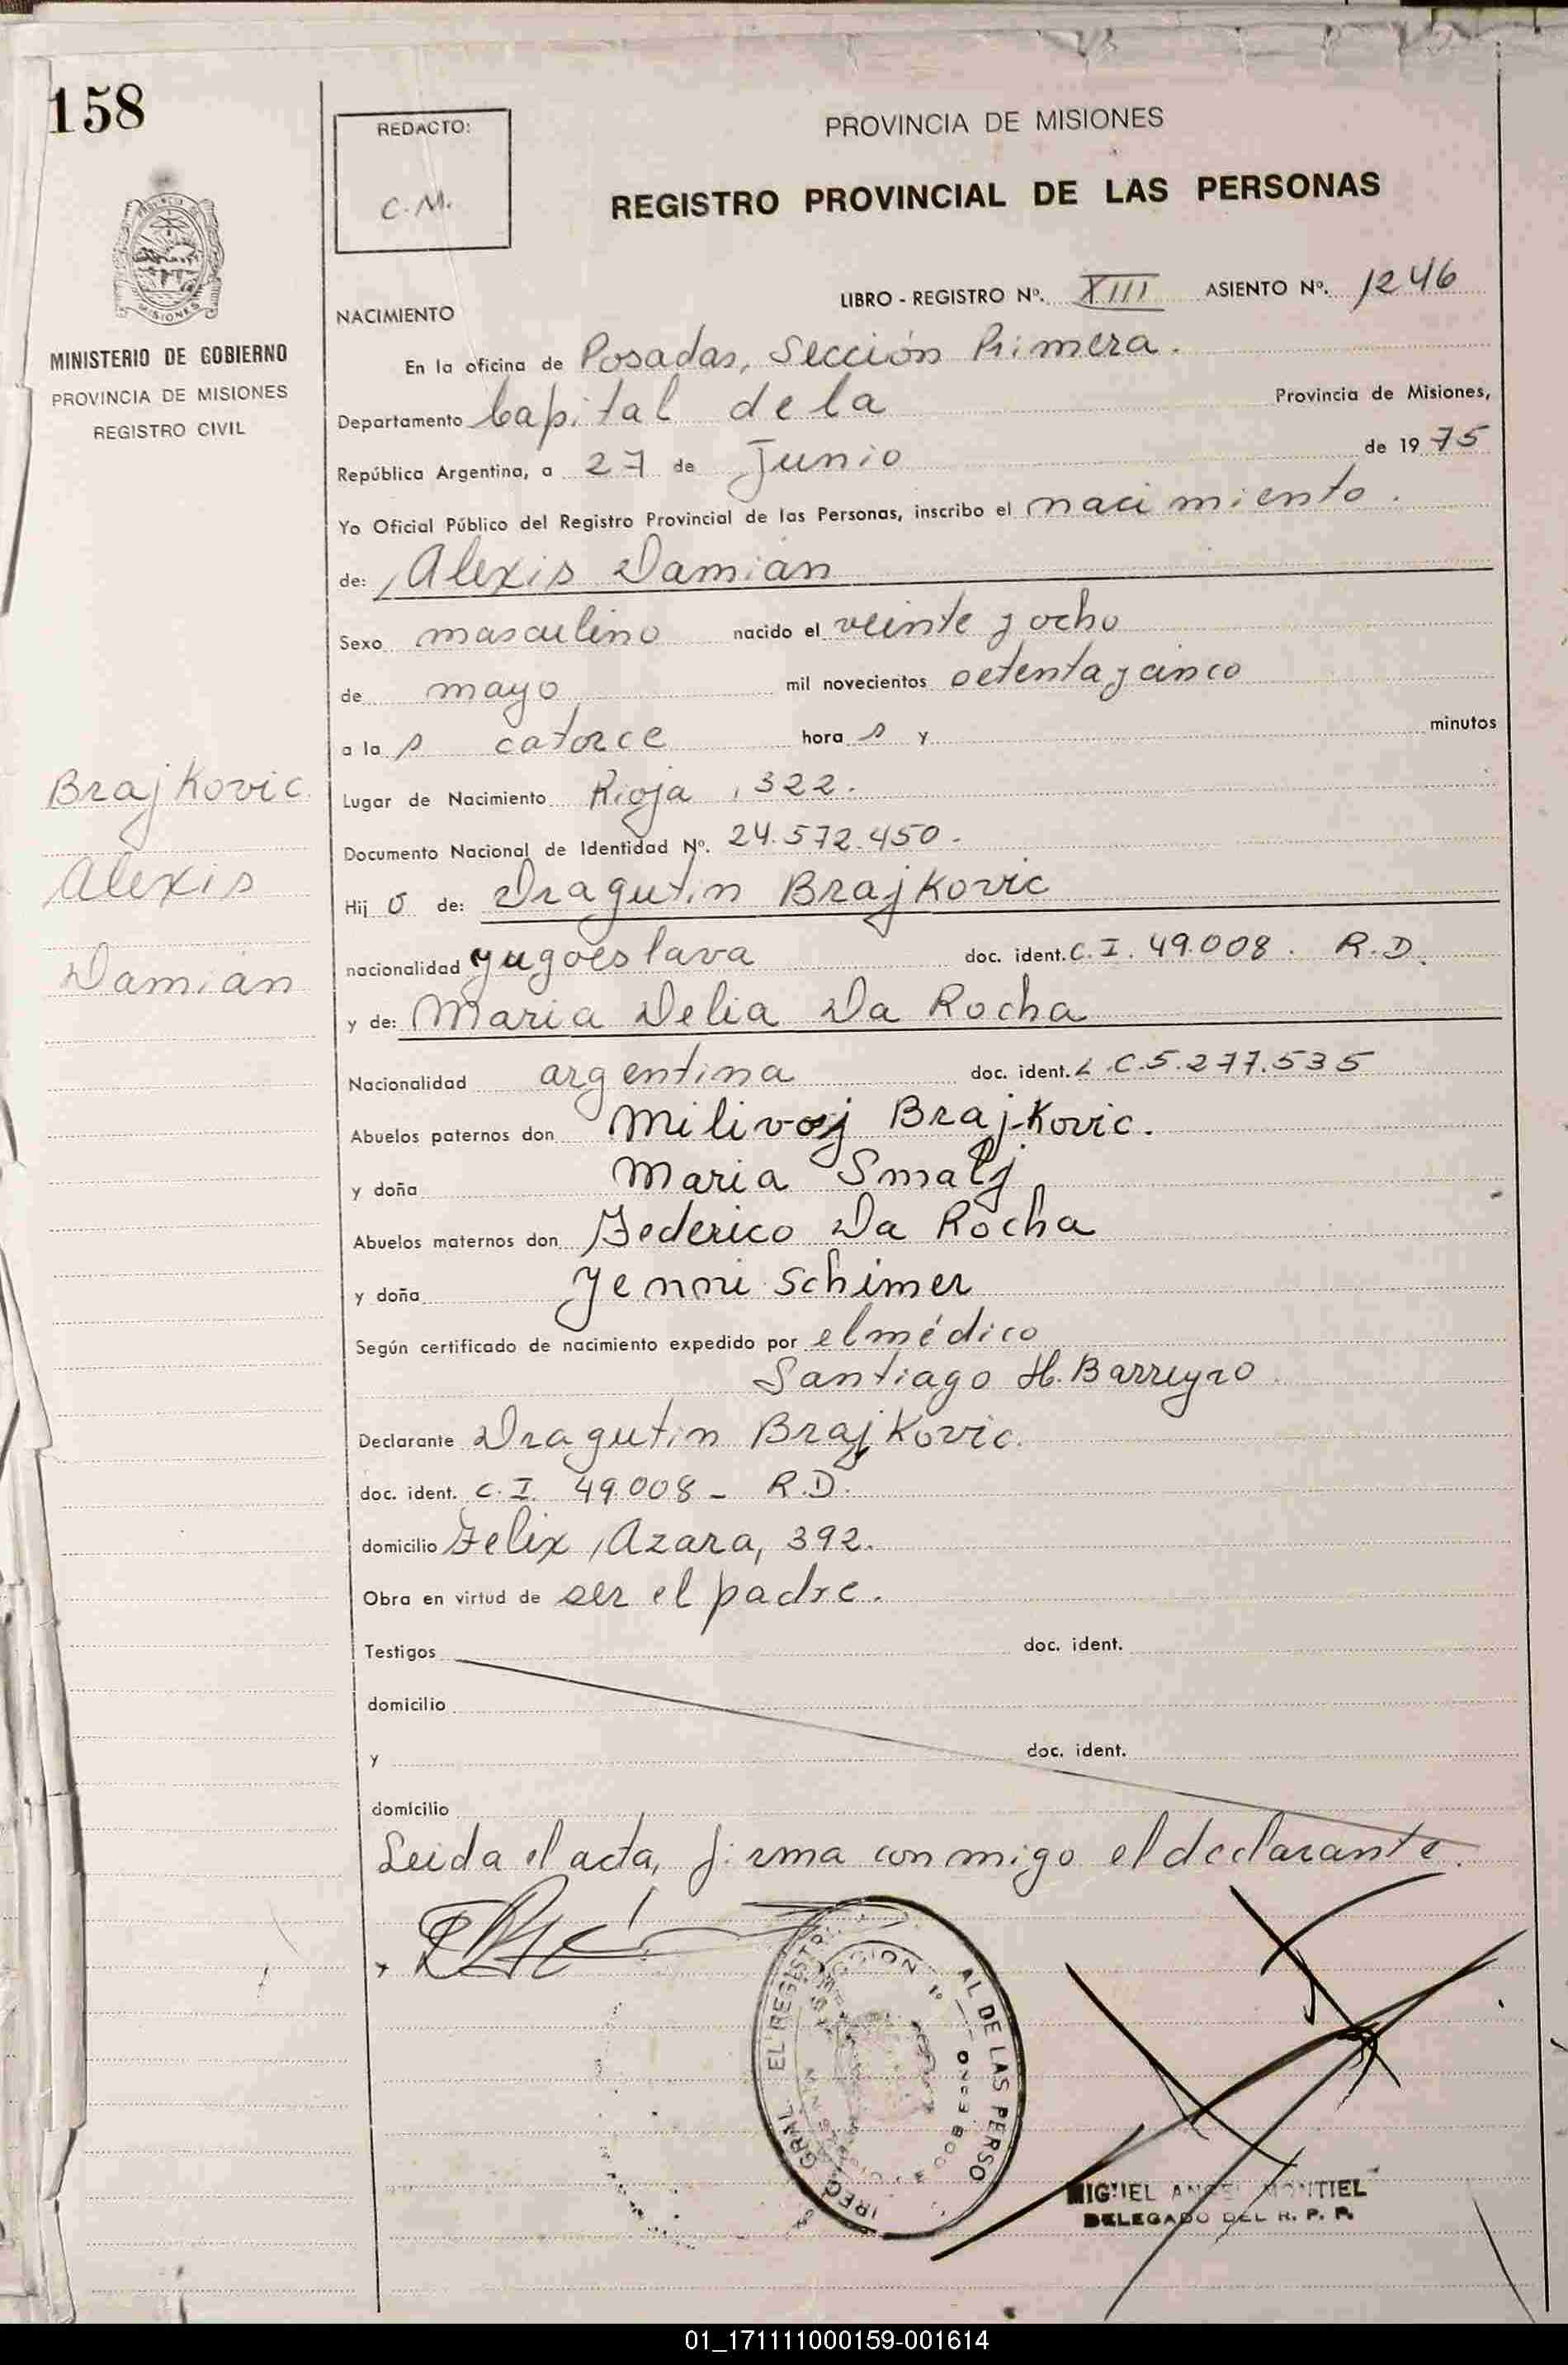 158
REDACTO:
C.M.
PROVINCIA DE MISIONES
REGISTRO PROVINCIAL DE LAS PERSONAS
MISIONES
MINISTERIO DE GOBIERNO
PROVINCIA DE MISIONES
REGISTRO CIVIL
LIBRO - REGISTRO Nº. XIII ASIENTO Nº. 1246
NACIMIENTO
En la oficina de Posadas, Sección Primera.
Departamento Capital de la Provincia de Misiones,
República Argentina, a 27 de Junio de 1975
Yo Oficial Público del Registro Provincial de las Personas, inscribo el nacimiento.
de: Alexis Damián
Sexo masculino nacido el veinte y ocho
de mayo mil novecientos setenta y cinco
a la s catorce hora s y minutos
Brajkovic
Lugar de Nacimiento Rioja, 322.
Documento Nacional de Identidad Nº. 24.572.450.
Alexis
Hij o de: Dragutin Brajkovic
Damián
nacionalidad yugoeslava doc. ident. C.I. 49.008. R.D.
y de: Maria Delia Da Rocha
Nacionalidad argentina doc. ident. L.C. 5.277.535
Abuelos paternos don Milivoj Brajkovic.
y doña Maria Smalj
Abuelos maternos don Federico Da Rocha
y doña Yenni Schimer
Según certificado de nacimiento expedido por el médico
Santiago H. Barreyro
Declarante Dragutin Brajkovic.
doc. ident. C.I. 49.008 - R.D.
domicilio Felix Azara, 392.
Obra en virtud de ser el padre.
Testigos doc. ident.
domicilio
y doc. ident.
domicilio
Leida el acta, firma conmigo el declarante.
MIGUEL ANGEL MONTIEL
DELEGADO DEL R. P. P.
01_171111000159-001614